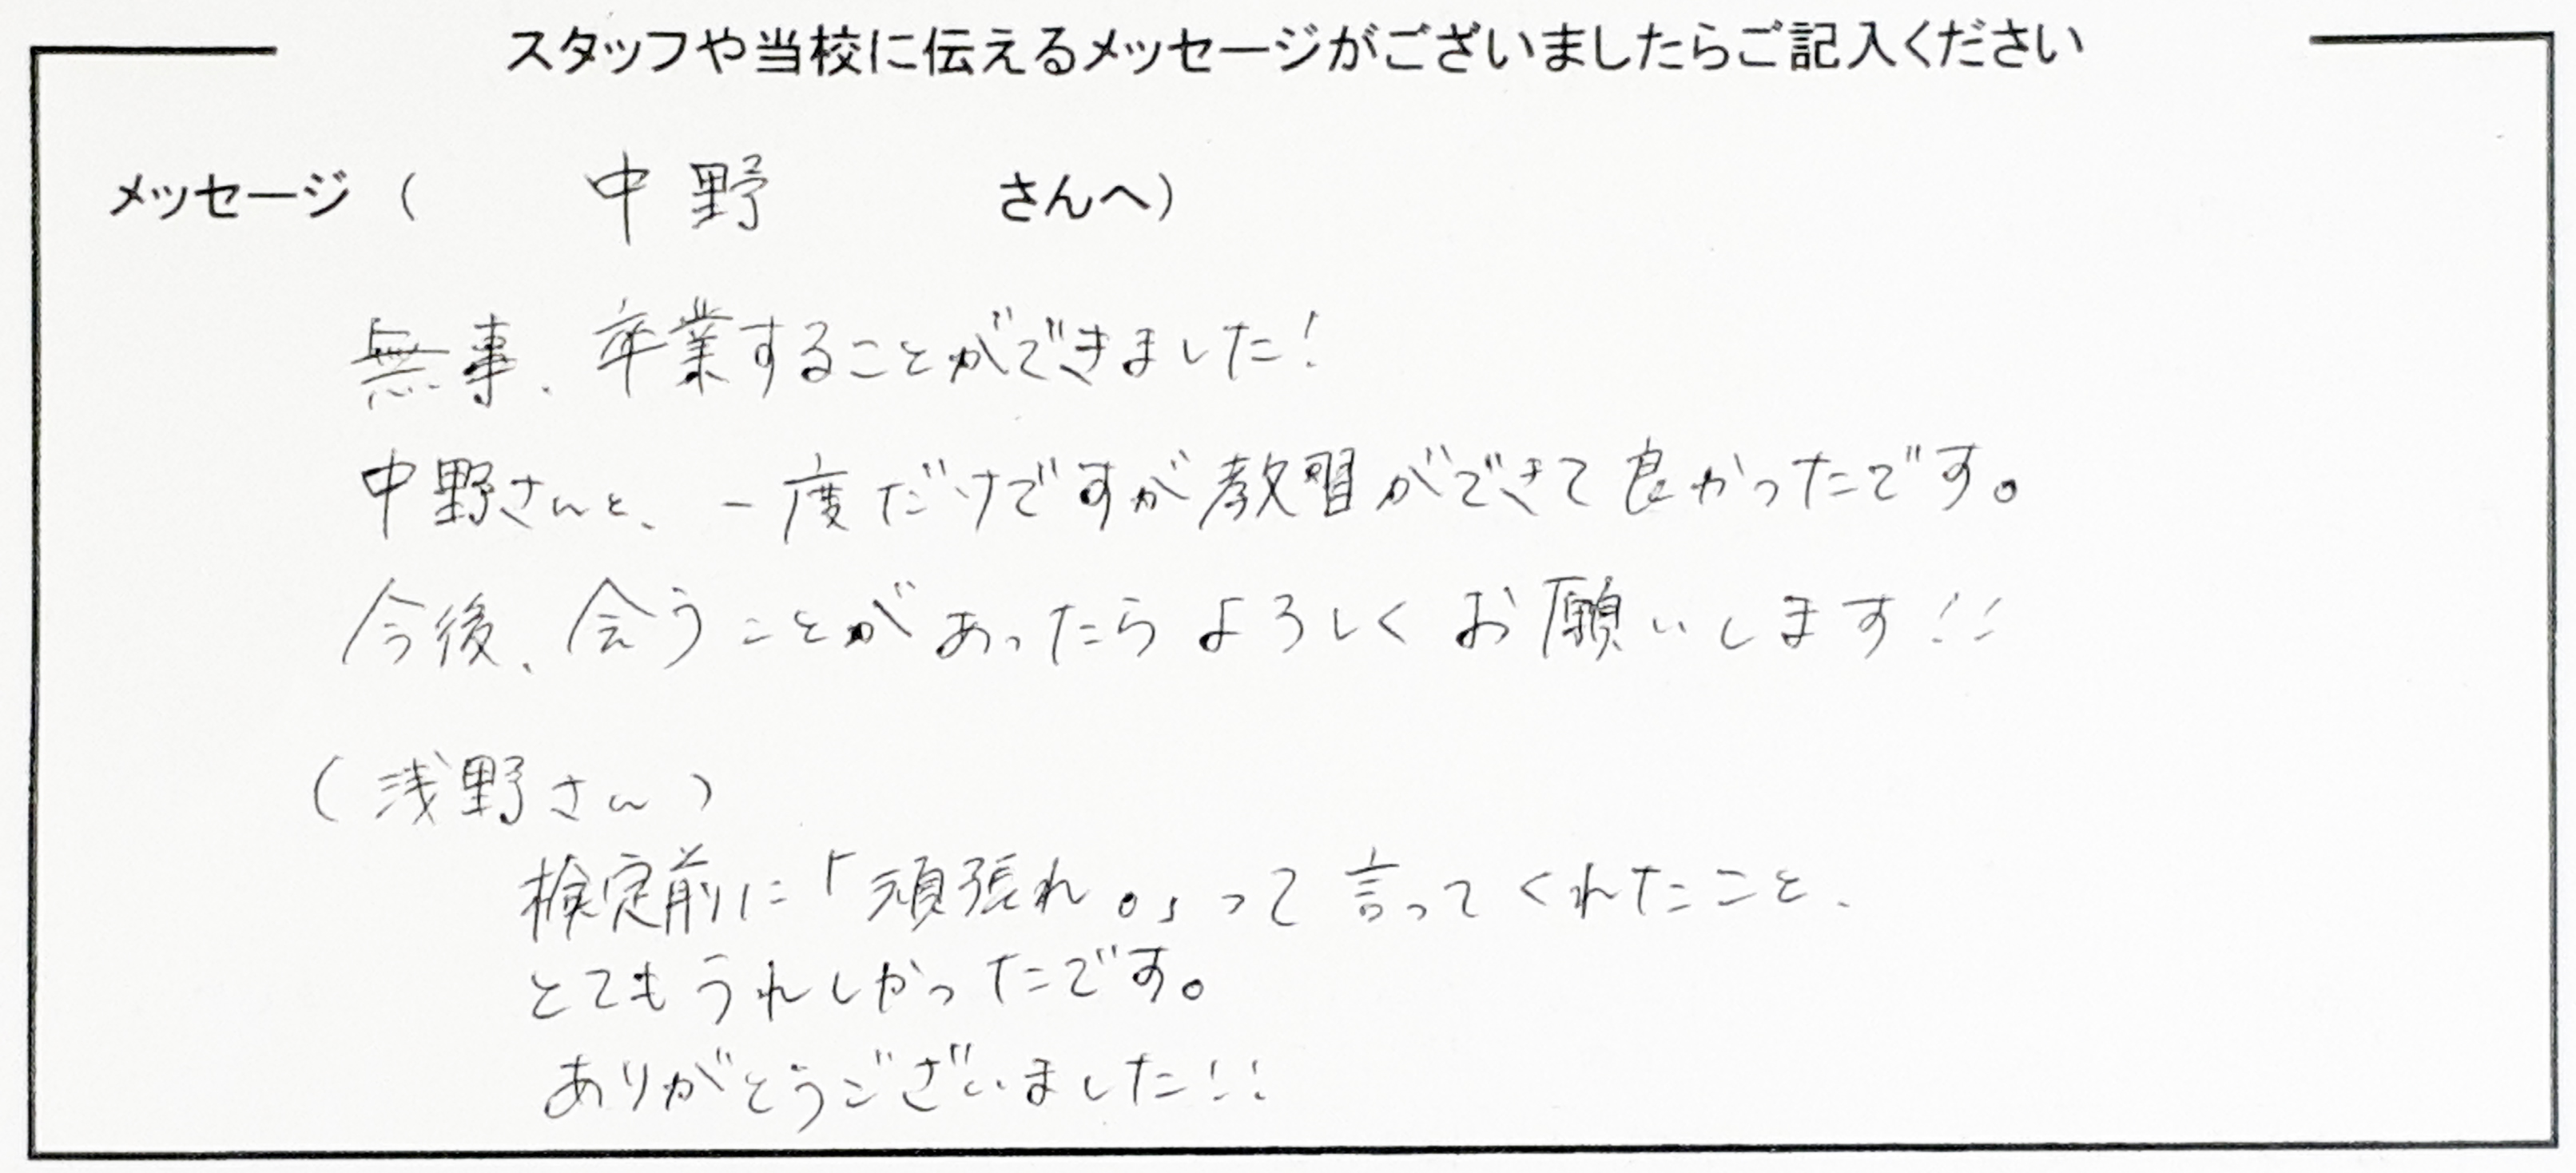 スタッフや当校に伝えるメッセージがございましたらご記入ください
メッセージ（　中野　さんへ）
無事、卒業することができました！
中野さんと、一度だけですが教習ができて良かったです。
今後、会うことがあったらよろしくお願いします！！
（浅野さん）
検定前に「頑張れ。」って言ってくれたこと、
とてもうれしかったです。
ありがとうございました！！